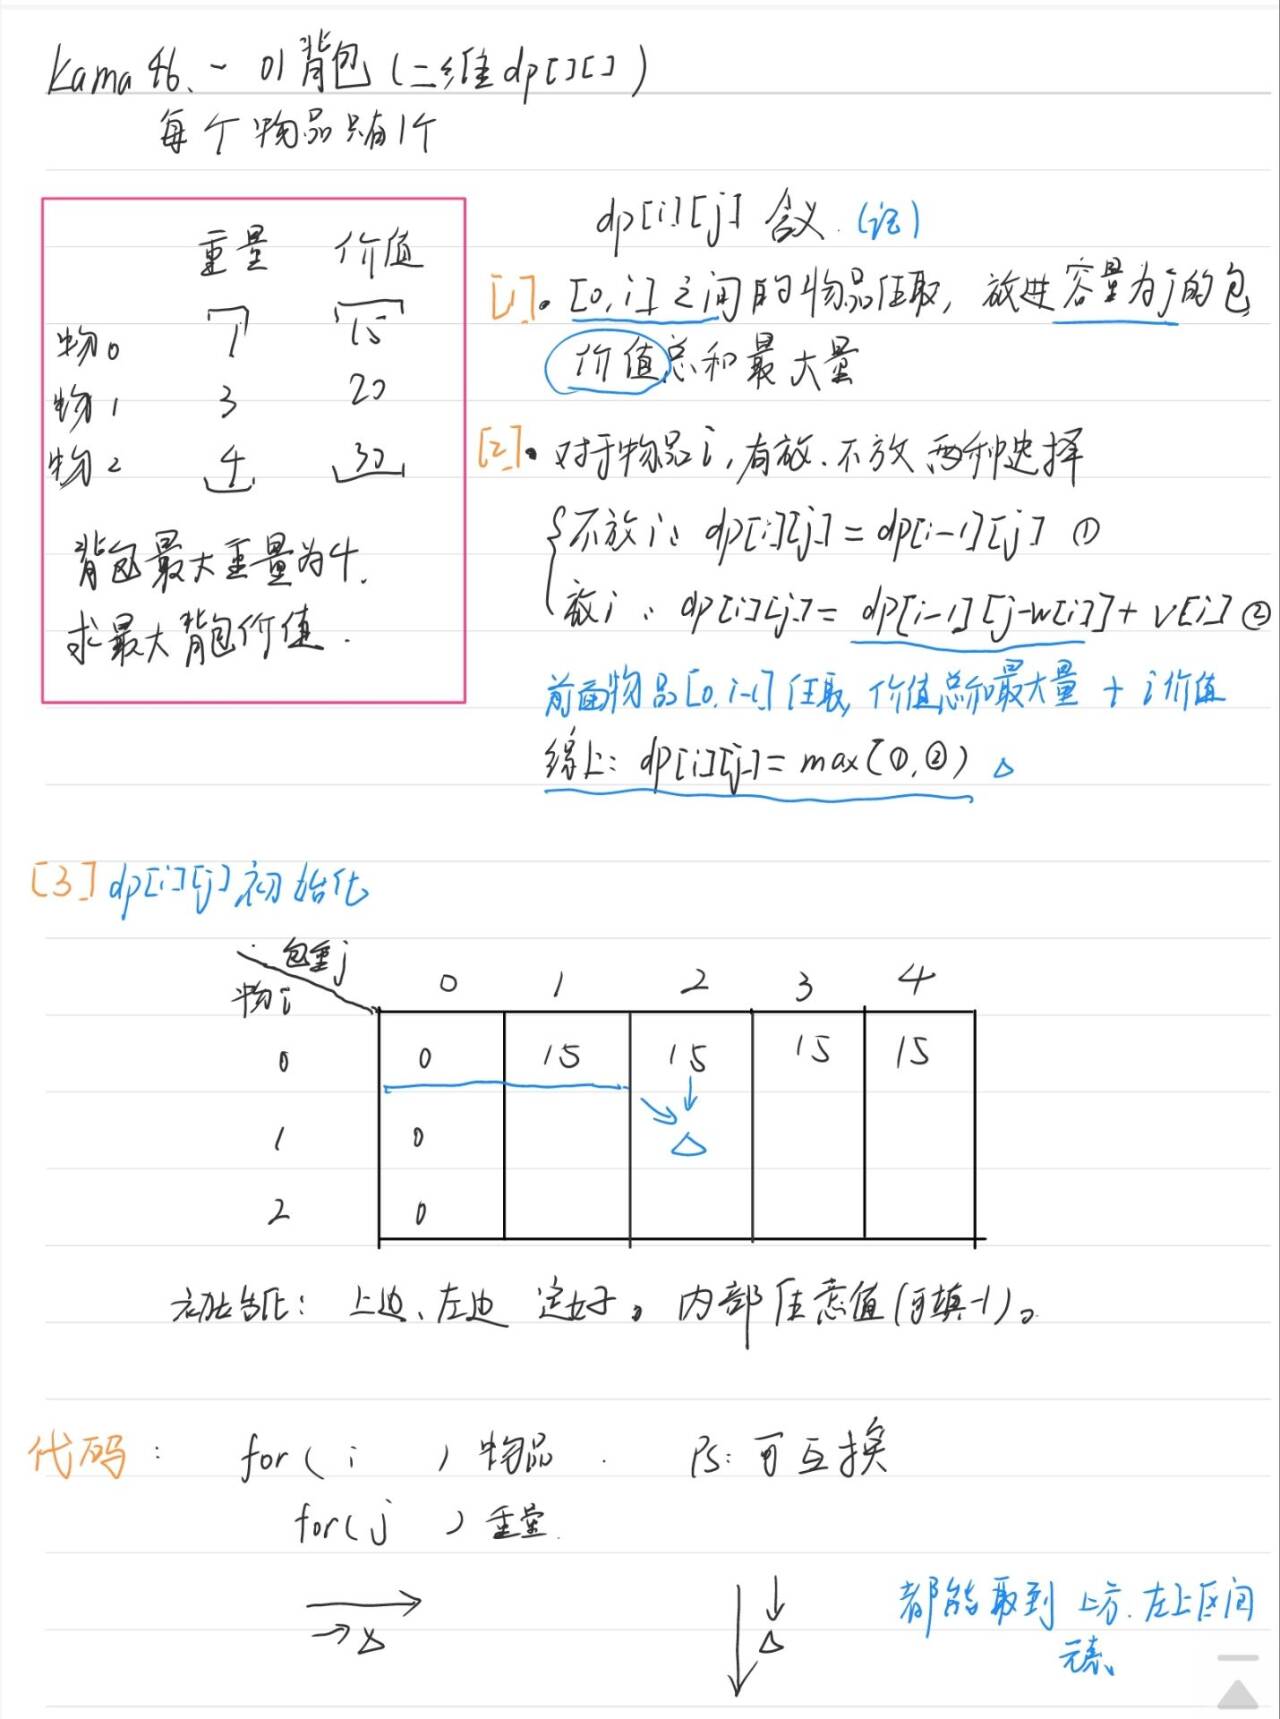 Kama 46. ~ 01背包(二维dp[][])
每个物品只有1个
重量 价值
物0 1 15
物1 3 20
物2 4 30
背包最大重量为4.
求最大背包价值.
dp[i][j] 含义. (记)
[1]. [0,i]之间的物品任取, 放进容量为j的包
价值总和最大量
[2]. 对于物品i, 有放、不放 两种选择
不放i: dp[i][j] = dp[i-1][j] ①
放i: dp[i][j] = dp[i-1][j-w[i]] + v[i] ②
前面物品[0,i-1]任取, 价值总和最大量 + i价值
综上: dp[i][j] = max(①,②) △
[3] dp[i][j]初始化
包重j
物i
0 1 2 3 4
0 0 15 15 15 15
1 0 △
2 0
初始化: 上边、左边 定好。内部任意值(可填-1)。
代码: for( i ) 物品. PS: 可互换
for( j ) 重量.
都能取到 上方、左上区间
元素、